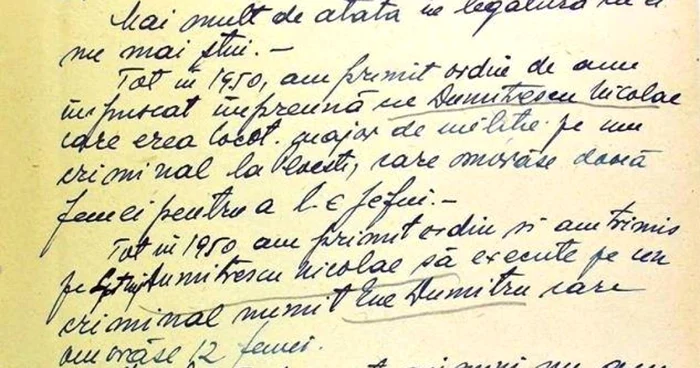 Mai mult de atata in legatura cu el
nu mai știu. -
Tot in 1950, am primit ordin de am
împușcat împreună cu Dumitrescu Nicolae
care erea locot. major de militie pe un
criminal la Costești, care omorâse două
femei pentru a l-e jefui. -
Tot in 1950 am primit ordin si am trimis
pe Dumitrescu Nicolae să execute pe un
criminal numit Ene Dumitru care
omorâse 12 femei.